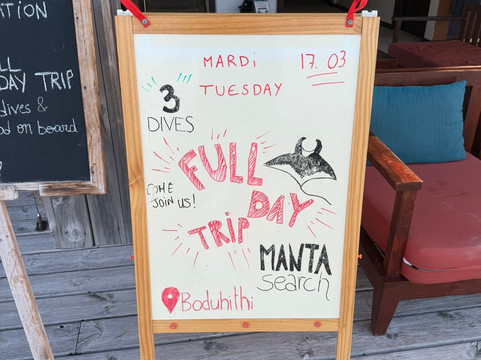 ITION
LL
DAY TRIP
dives &
od on board
MARDI 17.03
TUESDAY
3
DIVES
COME
JOIN US!
FULL
DAY
TRIP
MANTA
search
Boduhithi